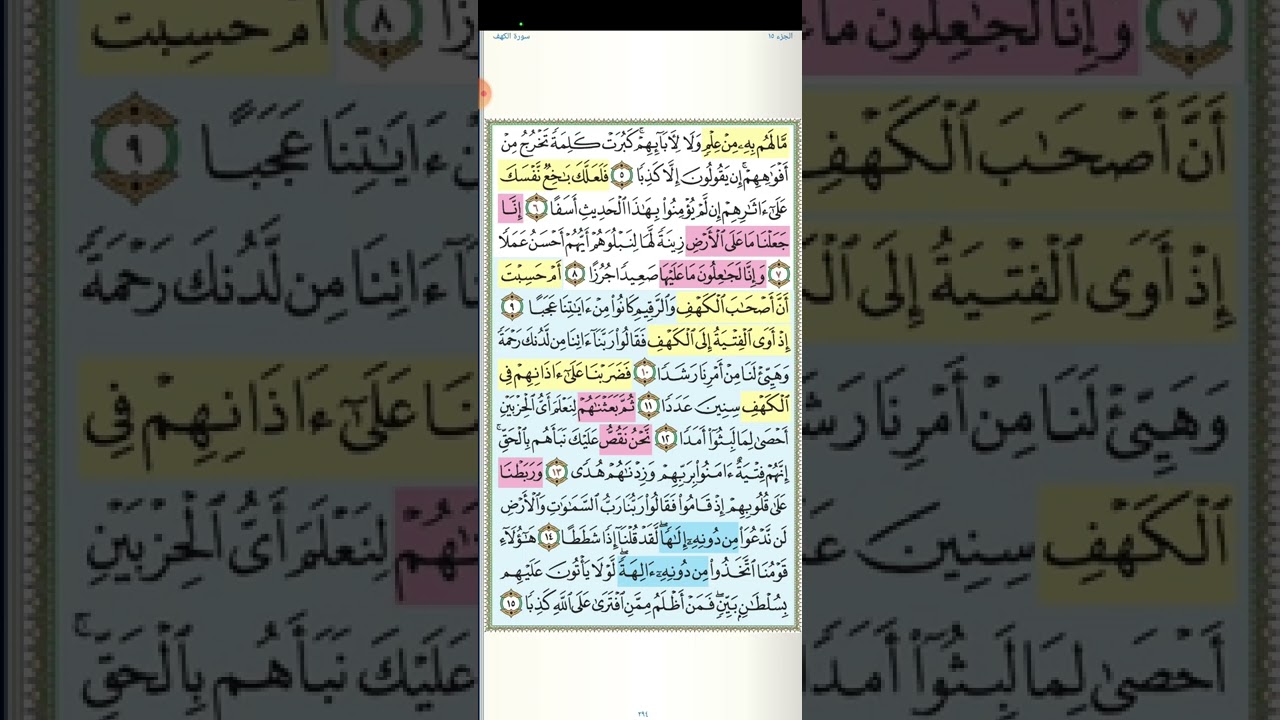 الجزء ١٥
سورة الكهف
مَّا لَهُم بِهِۦ مِنْ عِلْمٍ وَلَا لِأٓبَآئِهِمْ ۚ كَبُرَتْ كَلِمَةً تَخْرُجُ مِنْ
أَفْوَٰهِهِمْ ۚ إِن يَقُولُونَ إِلَّا كَذِبًا ٥ فَلَعَلَّكَ بَٰخِعٌ نَّفْسَكَ
عَلَىٰٓ ءَاثَٰرِهِمْ إِن لَّمْ يُؤْمِنُوا۟ بِهَٰذَا ٱلْحَدِيثِ أَسَفًا ٦ إِنَّا
جَعَلْنَا مَا عَلَى ٱلْأَرْضِ زِينَةً لَّهَا لِنَبْلُوَهُمْ أَيُّهُمْ أَحْسَنُ عَمَلًا
٧ وَإِنَّا لَجَٰعِلُونَ مَا عَلَيْهَا صَعِيدًا جُرُزًا ٨ أَمْ حَسِبْتَ
أَنَّ أَصْحَٰبَ ٱلْكَهْفِ وَٱلرَّقِيمِ كَانُوا۟ مِنْ ءَايَٰتِنَا عَجَبًا ٩
إِذْ أَوَى ٱلْفِتْيَةُ إِلَى ٱلْكَهْفِ فَقَالُوا۟ رَبَّنَآ ءَاتِنَا مِن لَّدُنكَ رَحْمَةً
وَهَيِّئْ لَنَا مِنْ أَمْرِنَا رَشَدًا ١٠ فَضَرَبْنَا عَلَىٰٓ ءَاذَانِهِمْ فِى
ٱلْكَهْفِ سِنِينَ عَدَدًا ١١ ثُمَّ بَعَثْنَٰهُمْ لِنَعْلَمَ أَىُّ ٱلْحِزْبَيْنِ
أَحْصَىٰ لِمَا لَبِثُوٓا۟ أَمَدًا ١٢ نَّحْنُ نَقُصُّ عَلَيْكَ نَبَأَهُم بِٱلْحَقِّ ۚ
إِنَّهُمْ فِتْيَةٌ ءَامَنُوا۟ بِرَبِّهِمْ وَزِدْنَٰهُمْ هُدًى ١٣ وَرَبَطْنَا
عَلَىٰ قُلُوبِهِمْ إِذْ قَامُوا۟ فَقَالُوا۟ رَبُّنَا رَبُّ ٱلسَّمَٰوَٰتِ وَٱلْأَرْضِ
لَن نَّدْعُوَا۟ مِن دُونِهِۦٓ إِلَٰهًا ۖ لَّقَدْ قُلْنَآ إِذًا شَطَطًا ١٤ هَٰٓؤُلَآءِ
قَوْمُنَا ٱتَّخَذُوا۟ مِن دُونِهِۦٓ ءَالِهَةً ۖ لَّوْلَا يَأْتُونَ عَلَيْهِم
بِسُلْطَٰنٍۭ بَيِّنٍ ۖ فَمَنْ أَظْلَمُ مِمَّنِ ٱفْتَرَىٰ عَلَى ٱللَّهِ كَذِبًا ١٥
٢٩٤